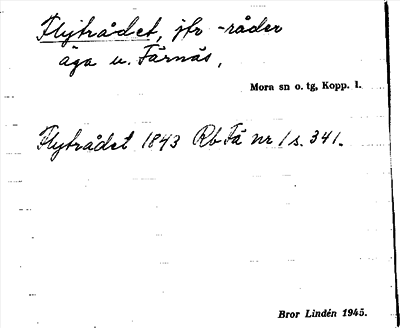 Flyträdet, jfr -råder
äga u. Färnäs,
Mora sn o. tg, Kopp. l.
Flyträdet 1843 Rb Fä nr 1 s. 341.
Bror Lindén 1945.